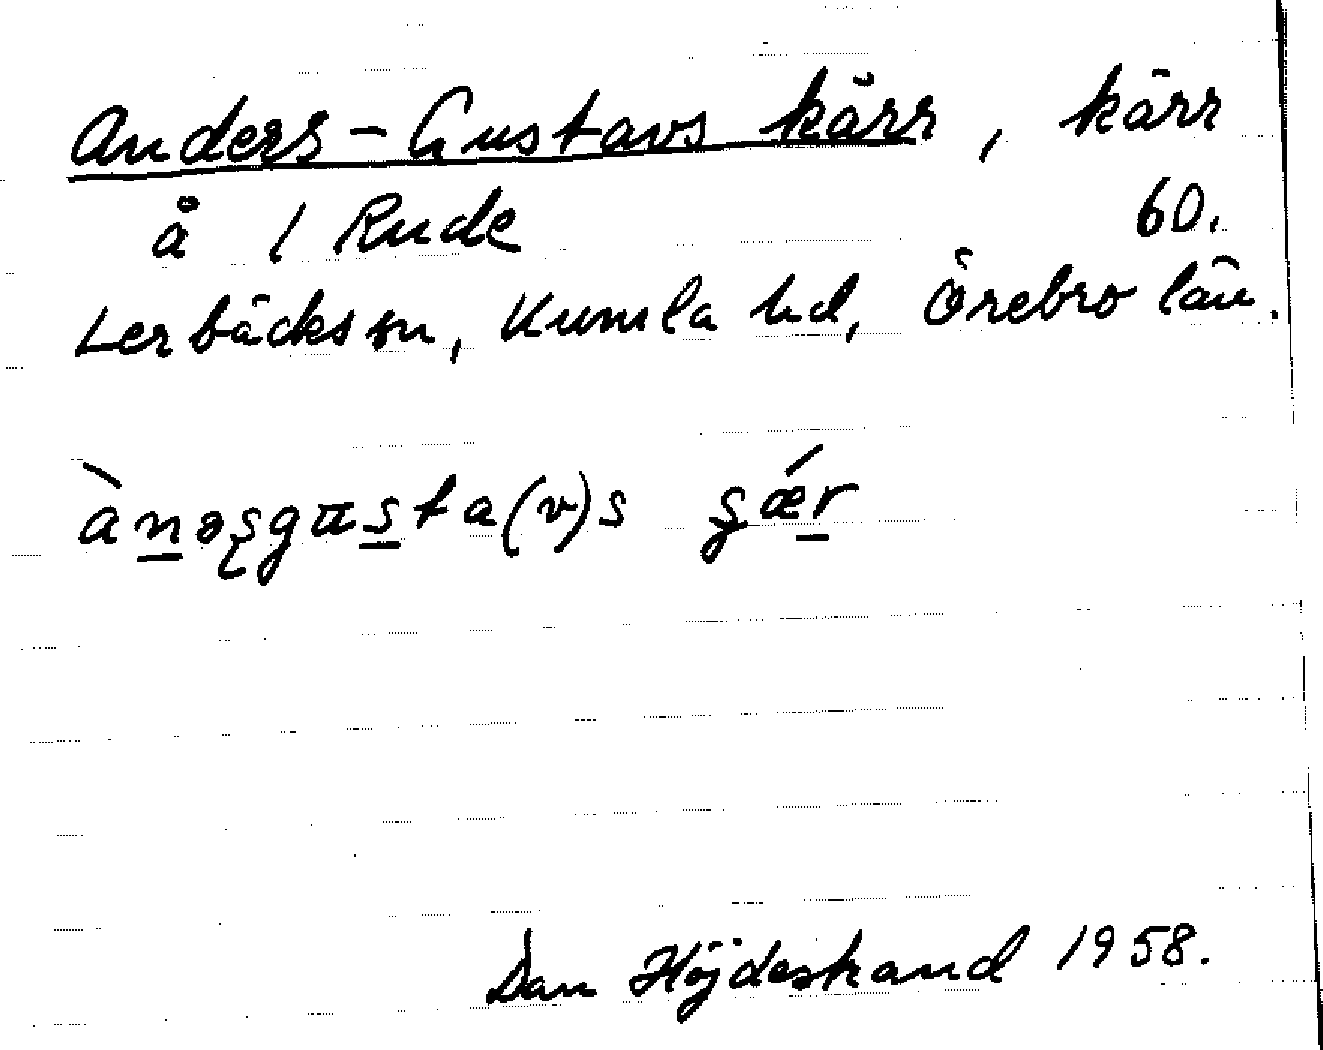 Anders-Gustavs kärr, kärr
å 1 Rude 60.
Lerbäcks sn, Kumla hd, Örebro län.
ànəşgusta(v)s şǽr
Dan Höjdestrand 1958.